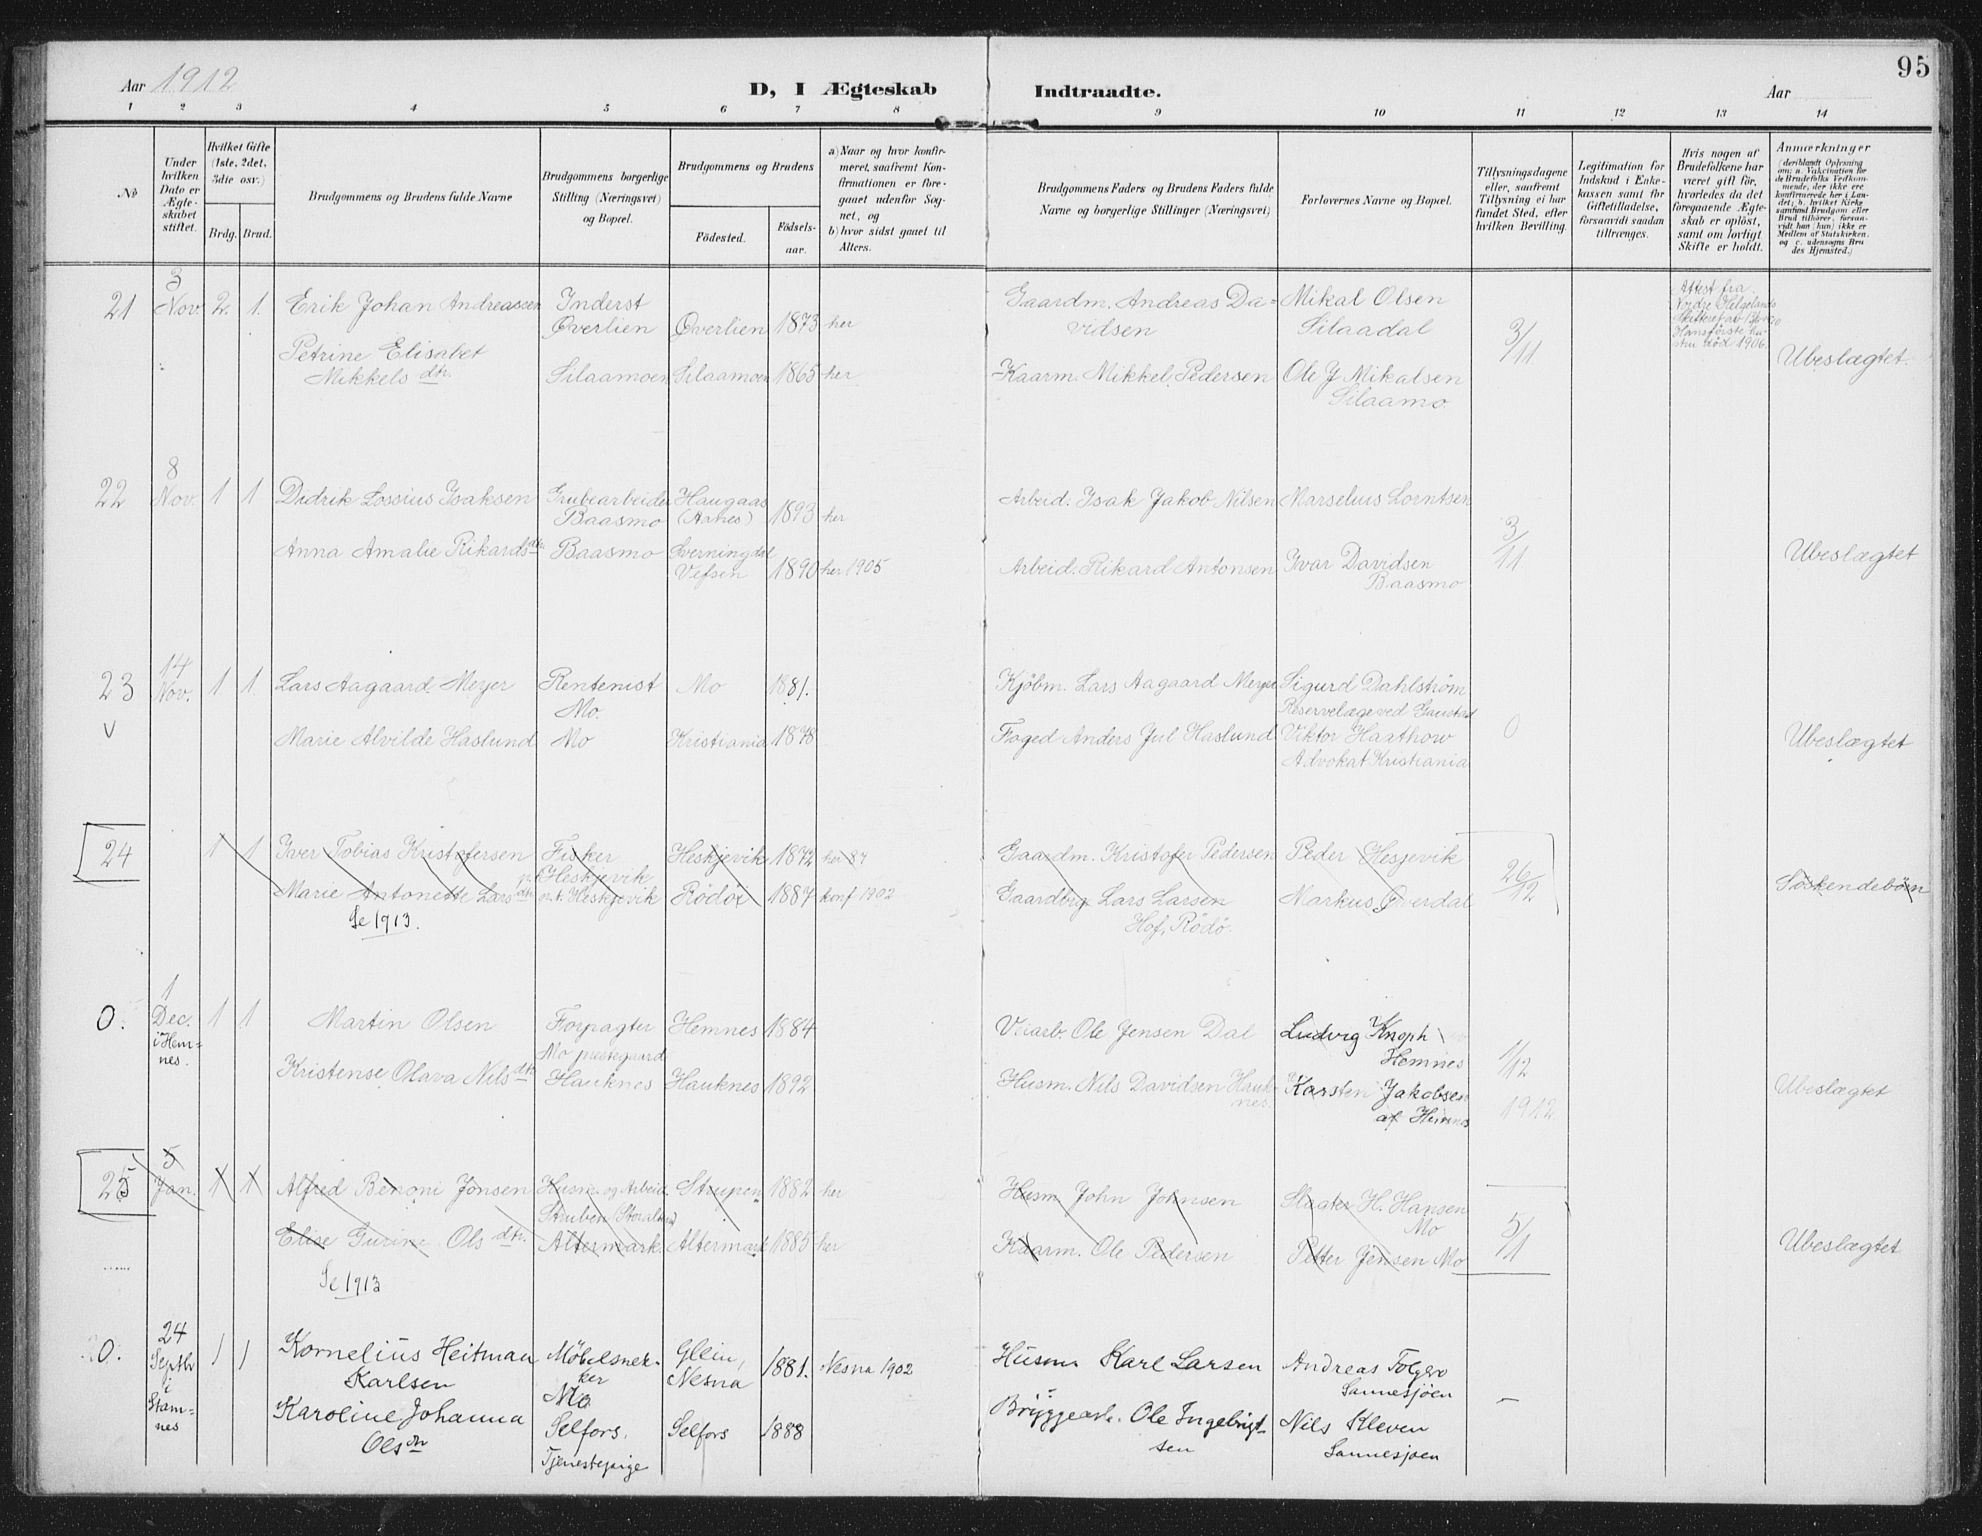 95
Aar 1912
D, I Ægteskab Indtraadte.
Aar
1 2 3 4 5 6 7 8 9 10 11 12 13 14
No
Under hvilken Dato er Ægteskabet stiftet.
Hvilket Gifte (1ste, 2det, 3die osv.)
Brdg. Brud.
Brudgommens og Brudens fulde Navne
Brudgommens borgerlige Stilling (Næringsvei) og Bopæl.
Brudgommens og Brudens
Fødested.
Fødsels-aar.
a) Naar og hvor konfirmeret, saafremt Konfirmationen er foregaaet udenfor Sognet, og
b) hvor sidst gaaet til Alters.
Brudgommens Faders og Brudens Faders fulde Navne og borgerlige Stillinger (Næringsvei)
Forlovernes Navne og Bopæl.
Tillysningsdagene eller, saafremt Tillysning ei har fundet Sted, efter hvilken Bevilling.
Legitimation for Indskud i Enkekassen samt for Giftetilladelse, forsaavidt saadan tiltrænges.
Hvis nogen af Brudefolkene har været gift før, hvorledes da det foregaaende Ægteskab er opløst, samt om lovligt Skifte er holdt.
Anmærkninger
(deriblandt Oplysning om: a. Vakcination for de Brudefolks Vedkommende, der ikke ere konfirmerede her i Landet; b. hvilket Kirkesamfund Brudgom eller Brud tilhører, forsaavidt han (hun) ikke er Medlem af Statskirken, og c. udensogns Brudes Hjemsted.)
21
3 Nov. 2. 1.
Erik Johan Andreassen Inderst Överlien Överlien 1873 her
Gaardm. Andreas Davidsen
Mikal Olsen Silaadal
3/11
Attest fra Nordre Helgelands
Hans första
död 1906.
Petrine Elisabet Mikkels dtr. Silaamoen Silaamoen 1865 her
Kaarm. Mikkel Pedersen
Ole J Mikalsen Silaamo
Ubeslægtet.
22
8 Nov. 1 1
Didrik Lossius Isaksen Grubearbeider Baasmo Haugaas (Aanes) 1893 her
Arbeid. Isak Jakob Nilsen
Marselius Lorntsen
3/11
Anna Amalie Rikards dtr. Baasmo Sverningdal Vefsen 1890 her 1905
Arbeid. Rikard Antonsen
Ivar Davidsen Baasmo
Ubeslægtet
23
14 Nov. 1 1.
V
Lars Aagaard Meyer Rentenist Mo. Mo 1881.
Kjöbm. Lars Aagaard Meyer
Sigurd Dahlström Reservelæge ved Gaustad
0
Marie Alvilde Haslund Mo Kristiania 1878
Foged Anders Jul Haslund
Viktor Haathow Advokat Kristiania
Ubeslægtet
24
1 1
Iver Tobias Kristofersen Fisker Heskjevik Heskjevik 1872 her 87
Gaardm. Kristofer Pedersen
Peder Hesjevik
26/12
Marie Antonette Lars dtr. p.t. Heskjevik Rödöi 1887 konf 1902
Gaardbrg Lars Larsen Hof, Rödö.
Markus Överdal
Söskendebörn
Se 1913.
0.
1 Dec. i Hemnes. 1 1
Martin Olsen Forpagter Mo prestegaard Hemnes 1884
V.iarb. Ole Jensen Dal
Ludvig Knoph Hemnes
1/12 1912
Kristense Olava Nils dtr. Hauknes Hauknes 1892
Husm. Nils Davidsen Hauknes.
Karsten Jakobsen af Hemnes
Ubeslægtet
25
5 Jan. 1 1
Alfred Benoni Jonsen Husm. og Arbeid. Struben Storalterd Strupen 1882 her
Husm John Johnsen
Slagter H. Hansen Mo
5/1
Elise Gurine Ols dtr. Altermark. Altermark 1885 her
Kaarm. Ole Pedersen
Petter Jensen Mo
Ubeslægtet
Se 1913
0.
24 Septbr i Stamnes 1 1
Kornelius Heitman Karlsen Möbelsnekker Mo Glein, Nesna 1881. Nesna 1902
Husm Karl Larsen
Andreas Tolgero Sannesjöen
—
Karoline Johanna Olsdtr Selfors. Tjenestepige Selfors 1888
Bryggearb. Ole Ingebrigtsen
Nils Kleven Sannesjøen